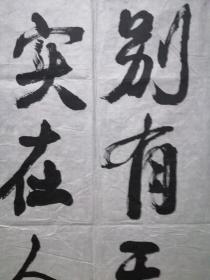 别有
实在人